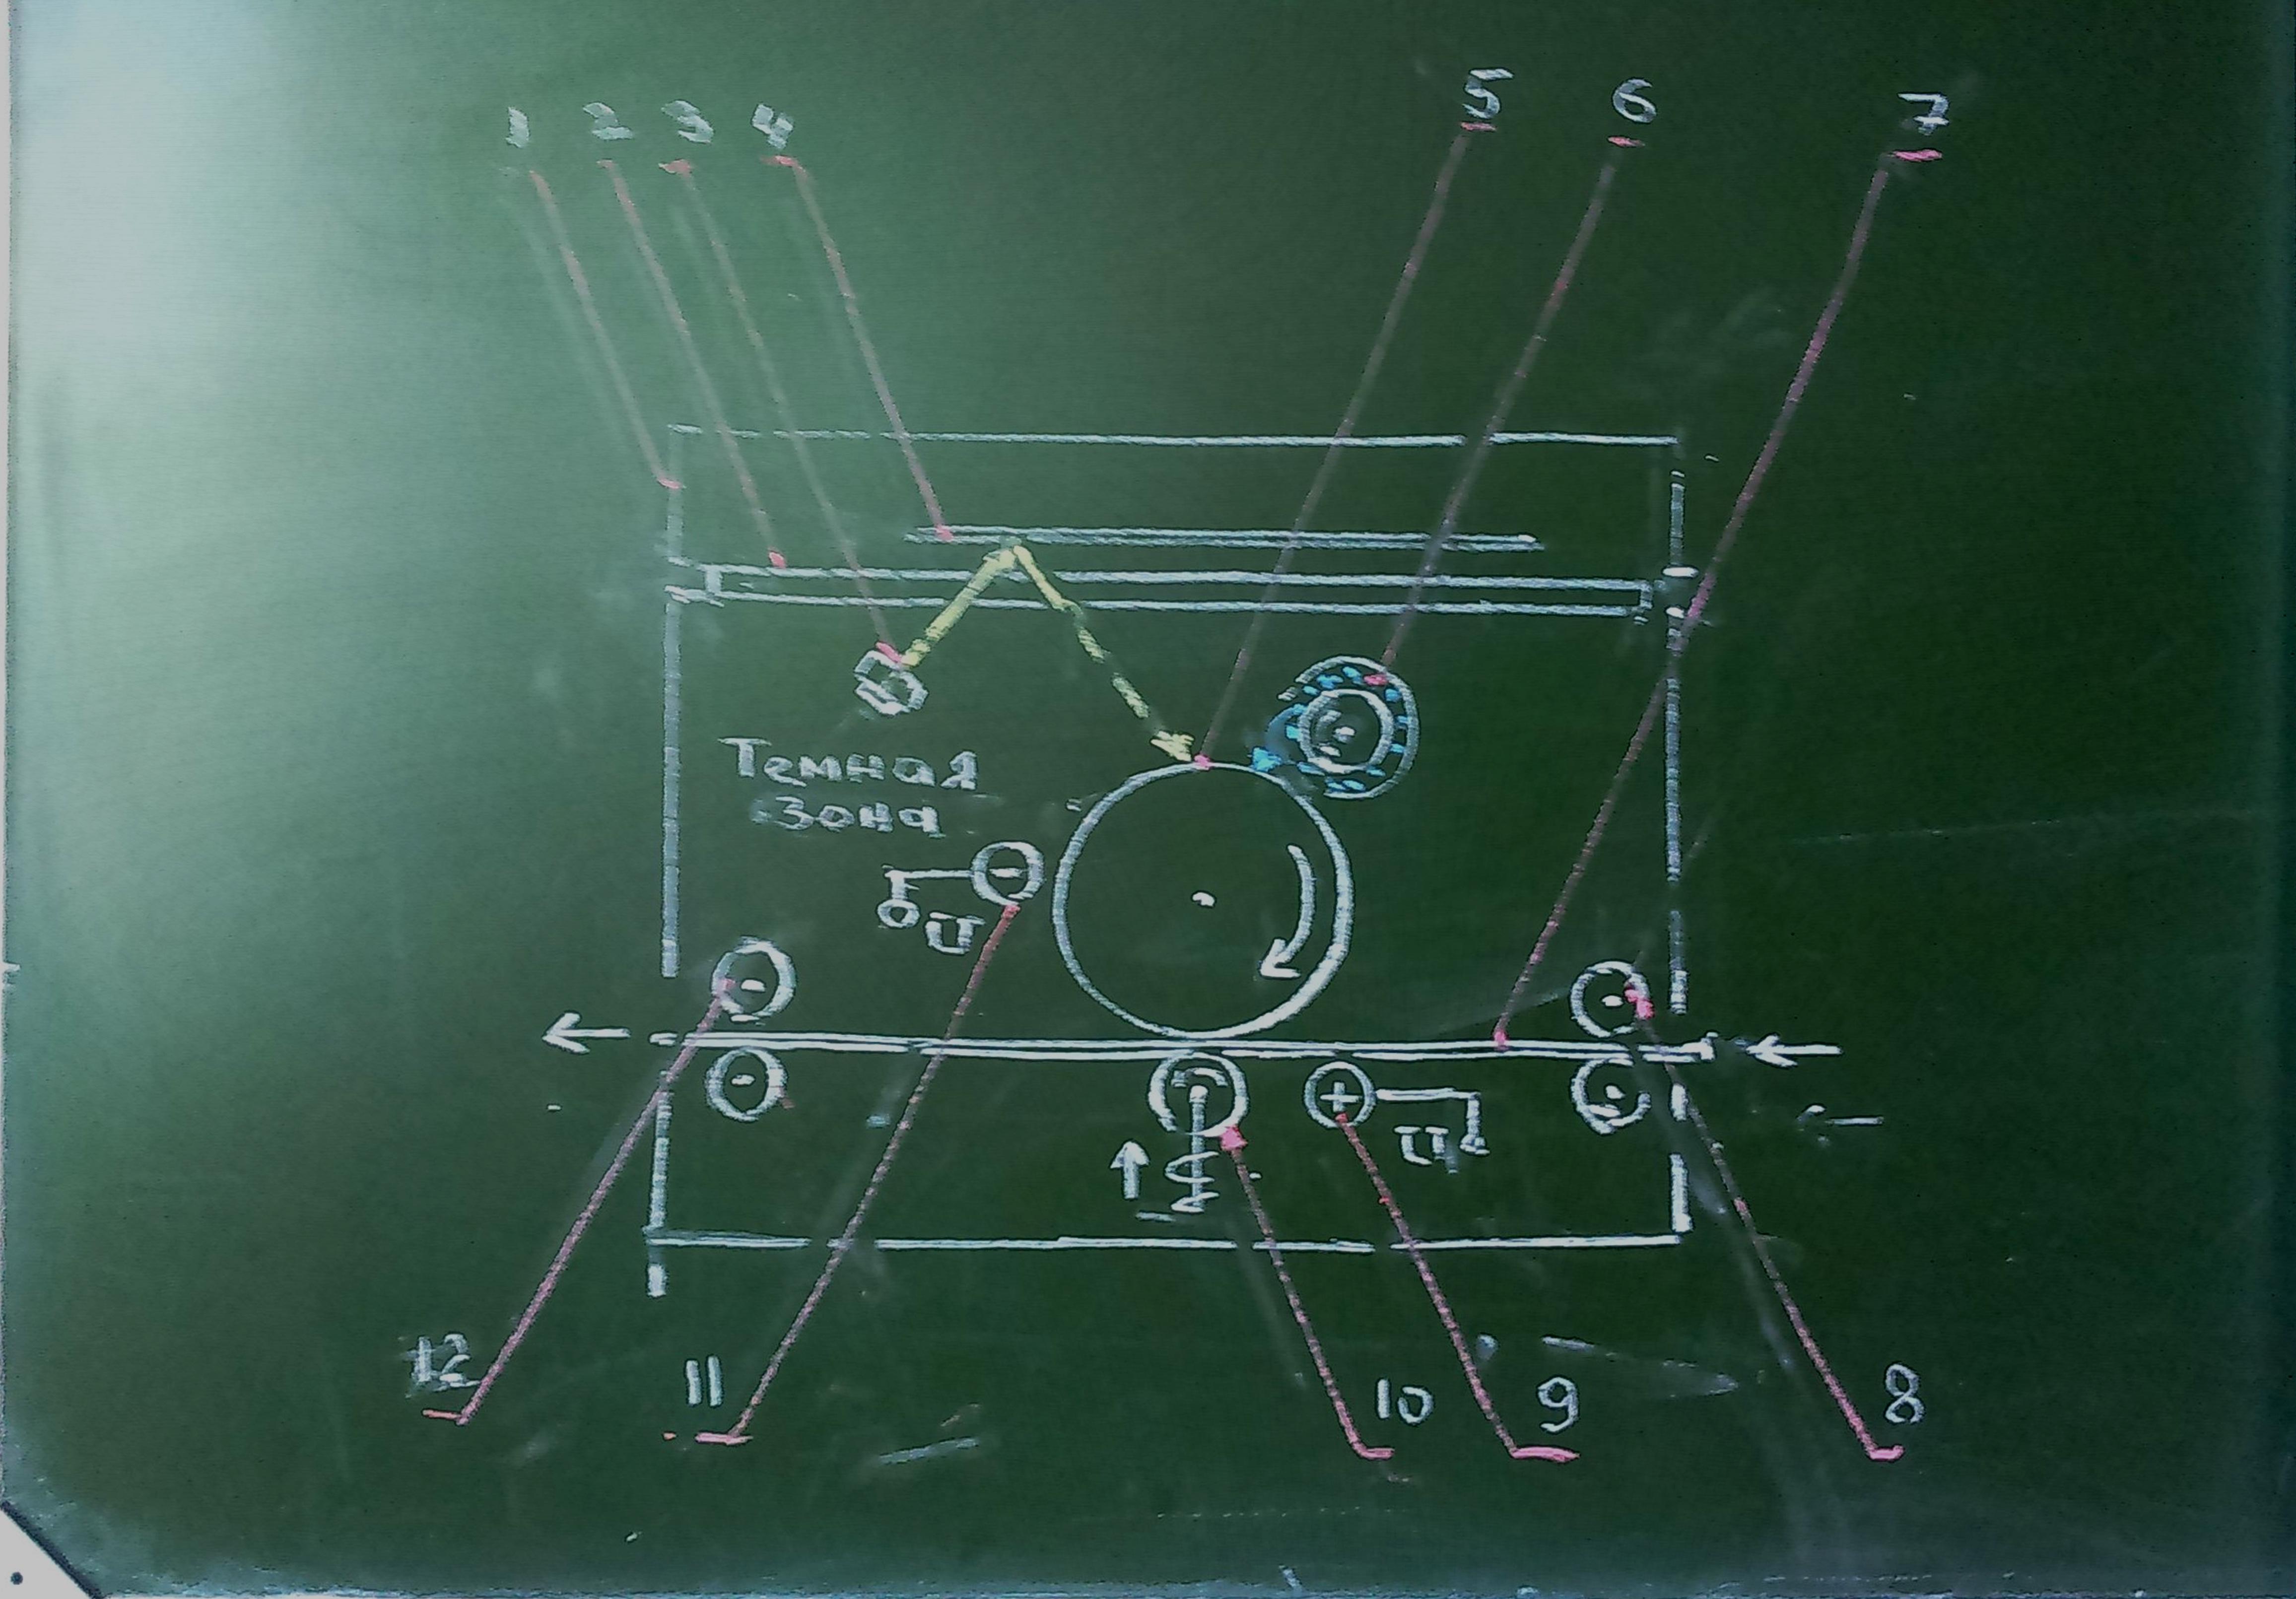 1 2 3 4 5 6 7
Темная
зона
U
U
12 11 10 9 8